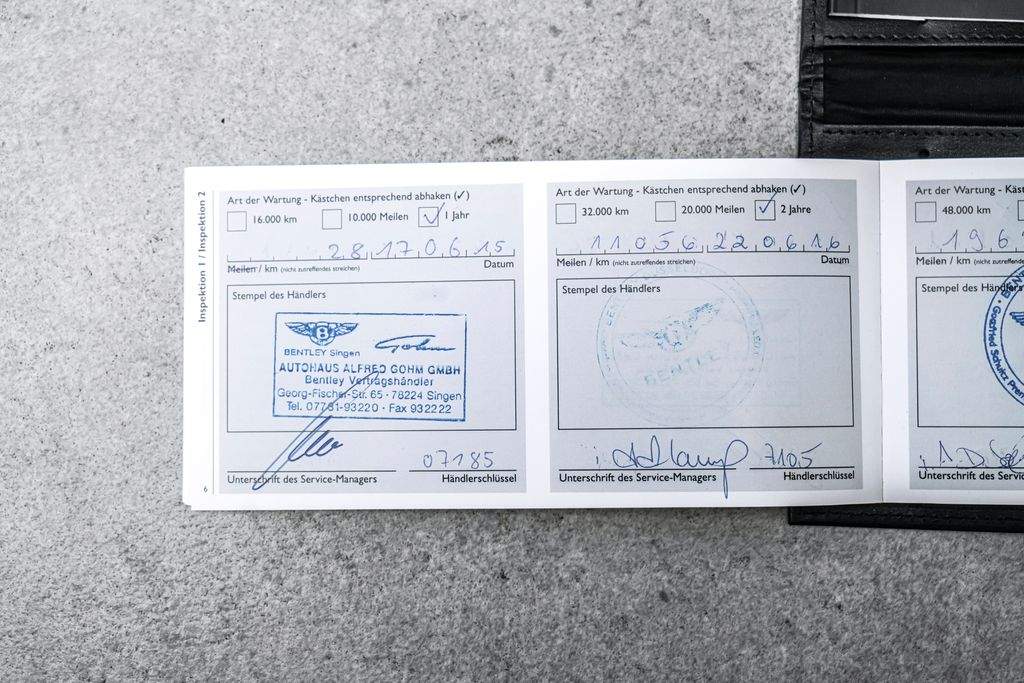 Inspektion 1 / Inspektion 2
Art der Wartung - Kästchen entsprechend abhaken (✓)
16.000 km
10.000 Meilen
✓ 1 Jahr
28 17 06 15
Meilen / km (nicht zutreffendes streichen)
Datum
Stempel des Händlers
B
BENTLEY Singen
Gohm
AUTOHAUS ALFRED GOHM GMBH
Bentley Vertragshändler
Georg-Fischer-Str. 65 · 78224 Singen
Tel. 07731-93220 · Fax 932222
07185
Unterschrift des Service-Managers
Händlerschlüssel
6
Art der Wartung - Kästchen entsprechend abhaken (✓)
32.000 km
20.000 Meilen
✓ 2 Jahre
11056 22 06 16
Meilen / km (nicht zutreffendes streichen)
Datum
Stempel des Händlers
BENTLEY
7105
Unterschrift des Service-Managers
Händlerschlüssel
Art der Wartung - Käst
48.000 km
196
Meilen / km (nicht zutreffendes
Stempel des Händlers
Gottfried Schultz
Unterschrift des Service